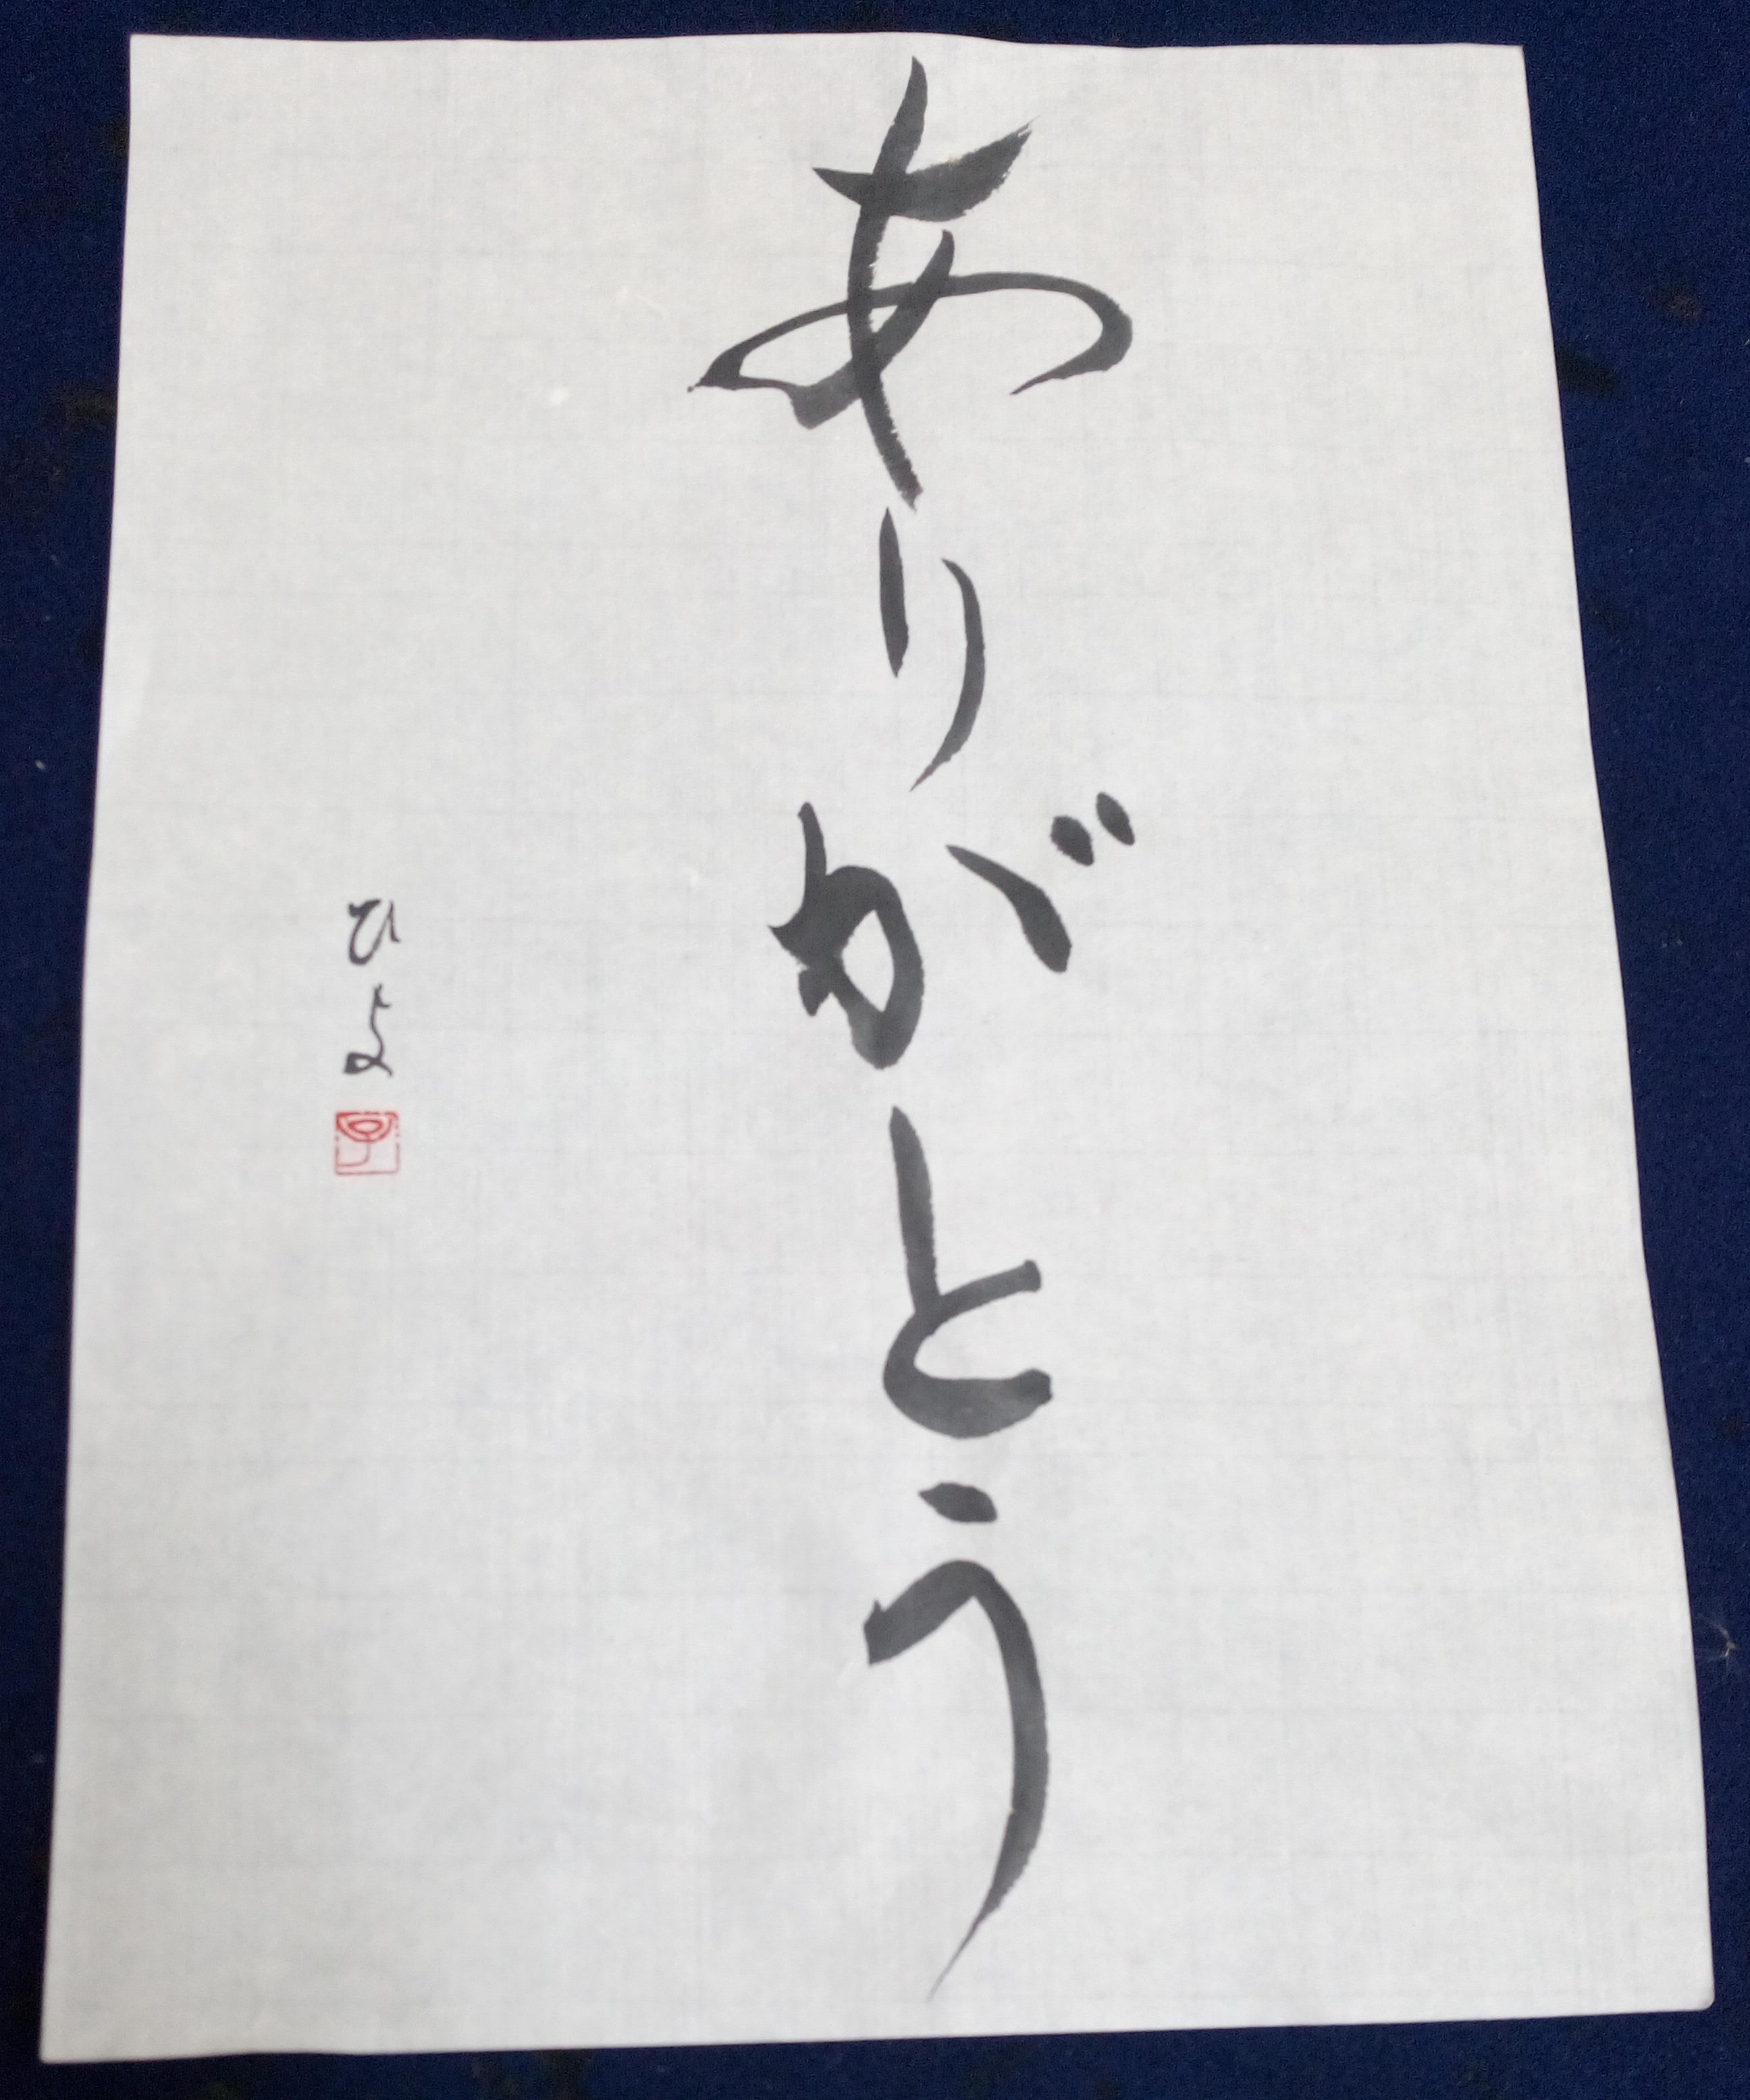 ありがとう
ひよ